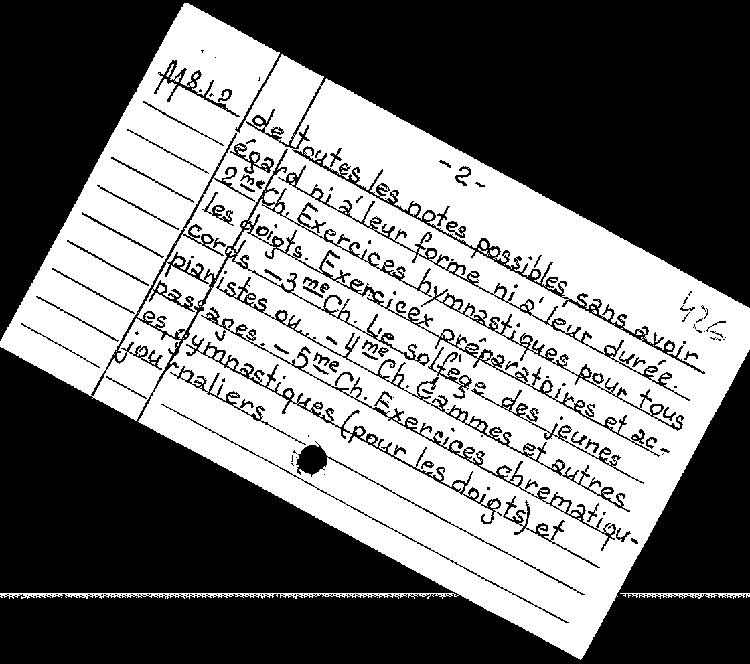 M8.1.2
-2-
426
de toutes les notes possibles, sans avoir
égard ni à leur forme ni à leur durée.
2me Ch. Exercices hymnastiques pour tous
les doigts. Exercicex préparatoires et ac-
cords. - 3me Ch. Le solfège des jeunes
pianistes ou... - 4me Ch. Gammes et autres
passages. - 5me Ch. Exersices chrematiqu-
es gymnastiques (pour les doigts) et
journaliers.